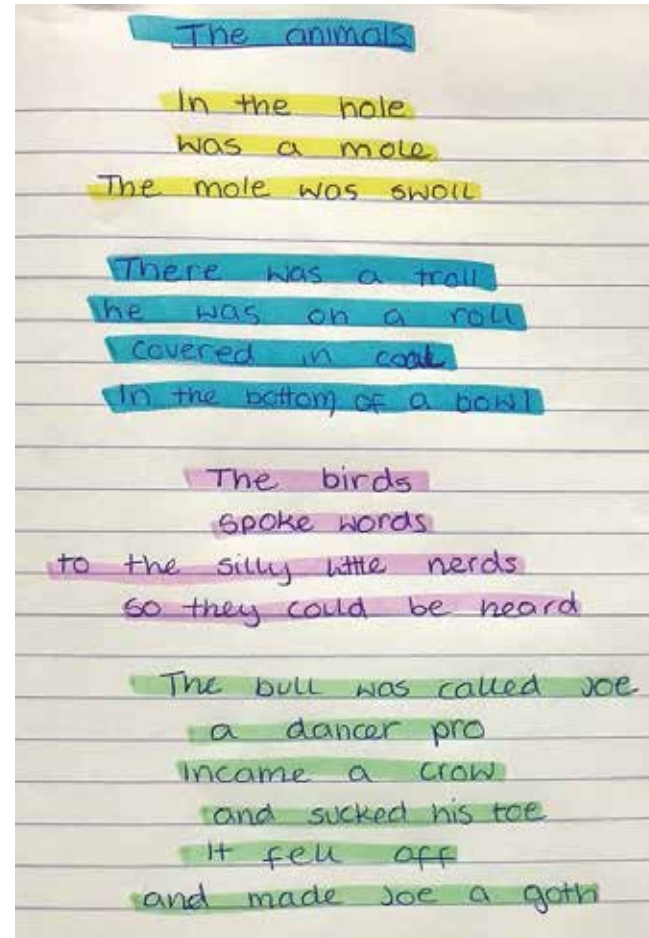 The animals
In the hole
was a mole
The mole was swoll
There was a troll
he was on a roll
covered in coal
In the bottom of a bowl
The birds
spoke words
to the silly little nerds
so they could be heard
The bull was called Joe
a dancer pro
Incame a crow
and sucked his toe
It fell off
and made Joe a goth